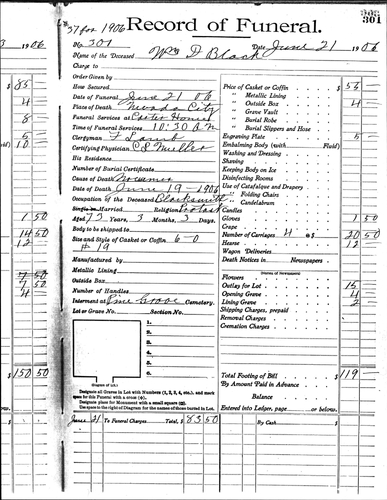 37 for 1906 Record of Funeral. 301
3 1906 No. 301 Date June 21 1906
Name of the Deceased Wm D Black
Charge to
Order Given by
How Secured
Date of Funeral June 21 06
Place of Death Nevada City
Funeral Services at
Time of Funeral Services 10:30 A M
Clergyman
Certifying Physician C E Muller
His Residence
Number of Burial Certificate
Cause of Death
Date of Death June 19 - 1906
Occupation of the Deceased Blacksmith
Single or Married Religion
Aged 73 Years, 3 Months, 3 Days.
Body to be shipped to
Size and Style of Casket or Coffin 6-0
# 19
Manufactured by
Metallic Lining
Outside Box
Number of Handles
Interment at Pine Grove Cemetery.
Lot or Grave No. Section No.
1.
2.
3.
4.
5.
6.
(Diagram of Lot.)
Designate all Graves in Lot with Numbers (1, 2, 3, 4, etc.), and mark
space for this Funeral with a cross (+).
Designate place for Monument with a small square (□).
Use space to the right of Diagram for the names of those buried in Lot.
June 21 To Funeral Charges Total, $ 83 50
$ 85
4
8
5
10
1 50
14 50
12
7 50
7 50
4
$ 150 50
Price of Casket or Coffin $ 55
" Metallic Lining
" Outside Box 4
" Grave Vault
" Burial Robe
" Burial Slippers and Hose
Engraving Plate 5
Embalming Body (with Fluid)
Washing and Dressing
Shaving
Keeping Body on Ice
Disinfecting Rooms
Use of Catafalque and Drapery
" Folding Chairs
" Candelabrum
Candles
Gloves 1 50
Crape
Number of Carriages 4 @ $ 20 50
Hearse 12
Wagon Deliveries
Death Notices in Newspapers
(Names of Newspapers)
Flowers
Outlay for Lot 15
Opening Grave 4
Lining Grave 2
Shipping Charges, prepaid
Removal Charges
Cremation Charges
Total Footing of Bill $ 119
By Amount Paid in Advance
Balance
Entered into Ledger, page or below.
By Cash $